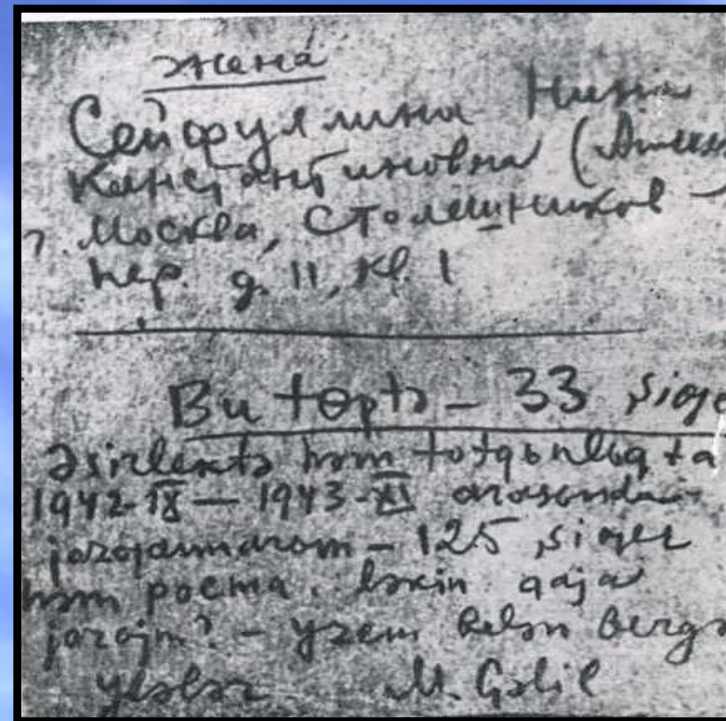 жена
Сейфуллина Нина
Константиновна
? Москва, Столешников -
пер. д. 11, кв. 1
Bu tөptə – 33 şige
Əsirlektə həm totqьnlьqta
1942-IX — 1943-XI arasьnda
– 125 şiger
həm poema. Ləkin qaja
jazajm? – yzem belən bergə
M. Gəlil